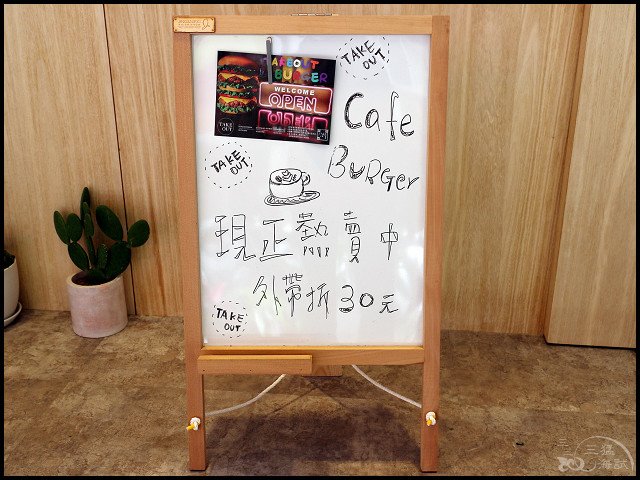 TAKEOUT
BURGER
WELCOME
OPEN
TAKE
OUT
TAKE
OUT
Cafe
BURGer
TAKE
OUT
現正熱賣中
外帶折30元
TAKE
OUT